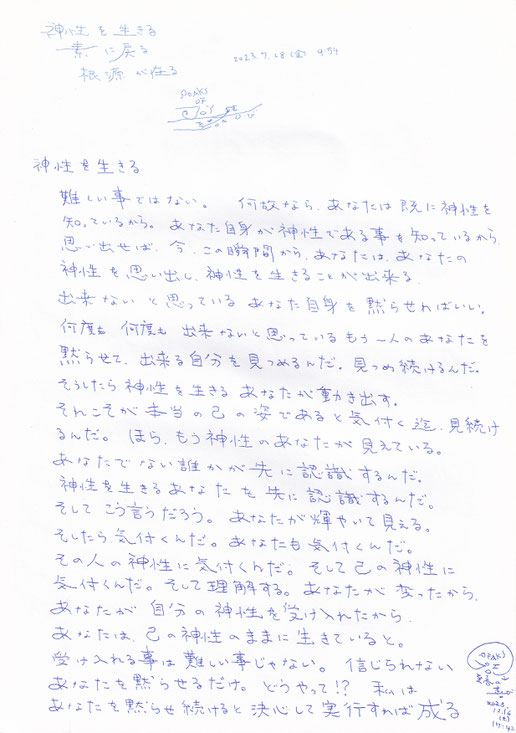 神性を生きる
素に戻る
根源が在る
2023.7.28(金) 9:54
OPAKS
OF
神性を生きる
難しい事ではない。 何故なら、あなたは既に神性を
知っているから。あなた自身が神性である事を知っているから、
思い出せば、今、この瞬間から、あなたは、あなたの
神性を思い出し、神性を生きることが出来る。
出来ないと思っているあなた自身を黙らせればいい。
何度も何度も出来ないと思っているもう一人のあなたを
黙らせて、出来る自分を見つめるんだ。見つめ続けるんだ。
そうしたら神性を生きるあなたが動き出す。
それこそが本当の己の姿であると気付く迄、見続け
るんだ。ほら、もう神性のあなたが見えている。
あなたでない誰かが先に認識するんだ。
神性を生きるあなたを先に認識するんだ。
そしてこう言うだろう。あなたが輝やいて見える。
そしたら気付くんだ。あなたも気付くんだ。
その人の神性に気付くんだ。そして己の神性に
気付くんだ。そして理解する。あなたが変ったから、
あなたが自分の神性を受け入れたから、
あなたは、己の神性のままに生きていると。
受け入れる事は難しい事じゃない。信じられない
あなたを黙らせるだけ。どうやって!? 私は
あなたを黙らせ続けると決心して実行すれば成る
OPAKS
2023
12.16
(土)
17:42